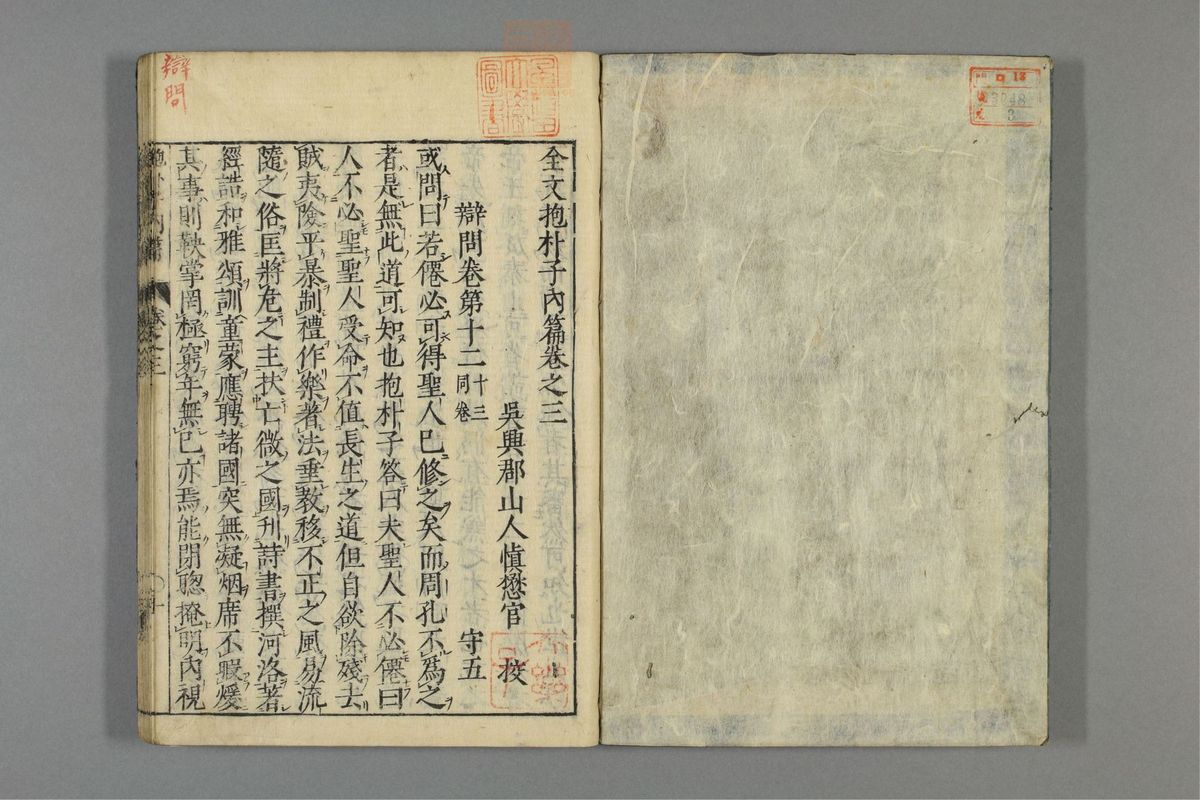 全文抱朴子內篇卷之三
吳興郡山人愼懋官 校
辯問卷第十二 十三同卷 守五
或問曰若僊必可得聖人已修之矣而周孔不爲之
者是無此道可知也抱朴子答曰夫聖人不必僊曰
人不必聖聖人受命不值長生之道但自欲除殘去
賊夷險平暴制禮作樂著法垂教移不正之風易流
隨之俗匡將危之主扶亡微之國刊詩書撰河洛著
經誥和雅頌訓童蒙應聘諸國突無凝烟席不暇煖
其事則鞅掌罔極窮年無已亦焉能閉聰掩明內視
辯問